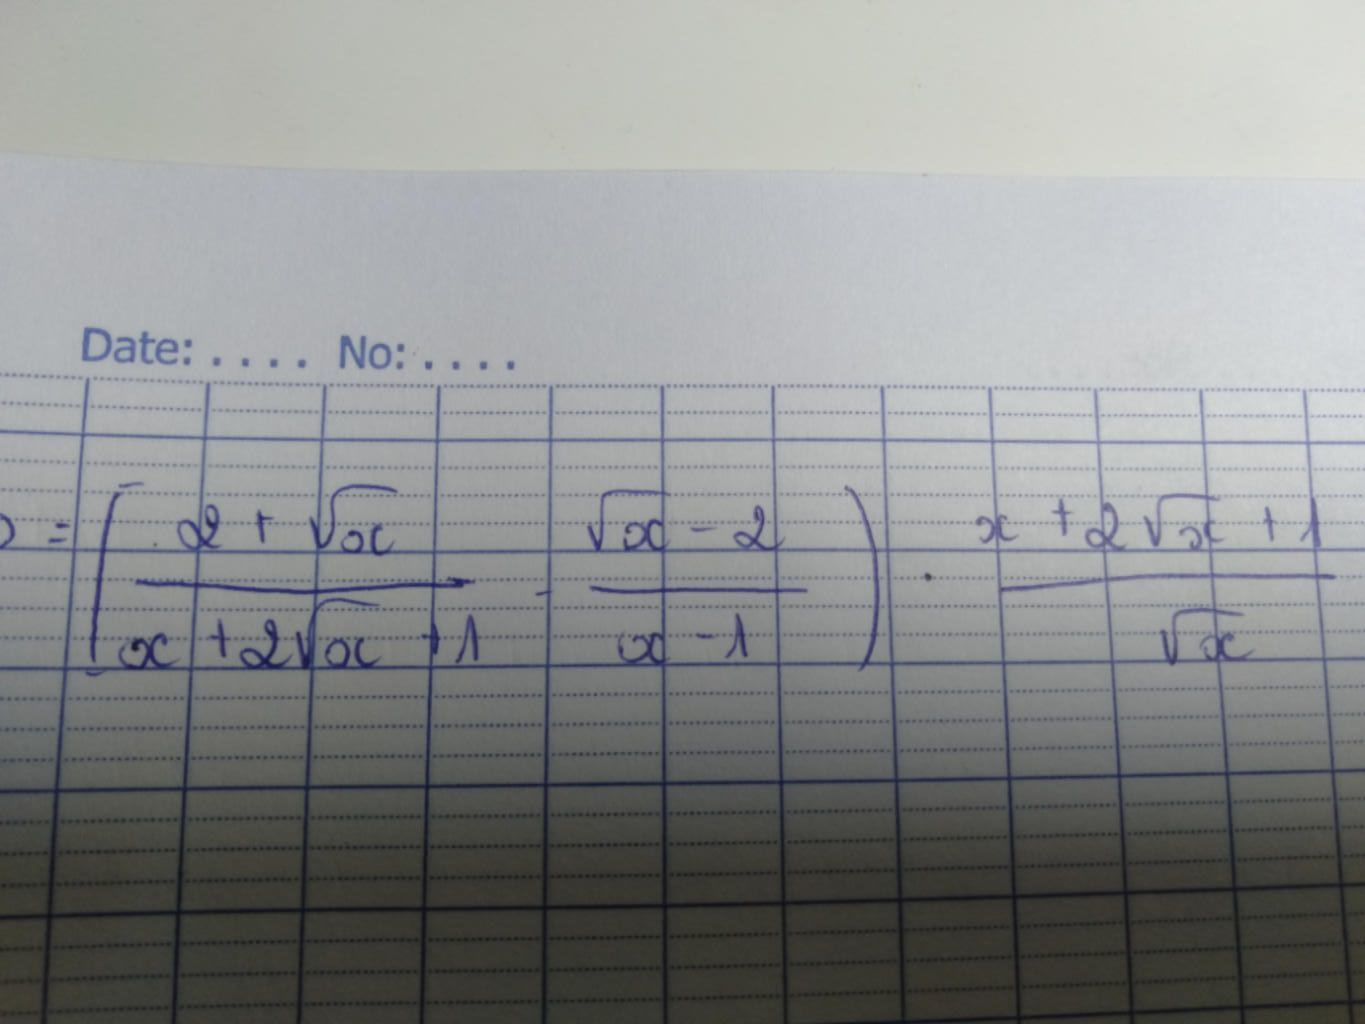 Date: .... No: ....
= ( \frac{2 + \sqrt{x}}{x + 2\sqrt{x} + 1} - \frac{\sqrt{x} - 2}{x - 1} ) . \frac{x + 2\sqrt{x} + 1}{\sqrt{x}}